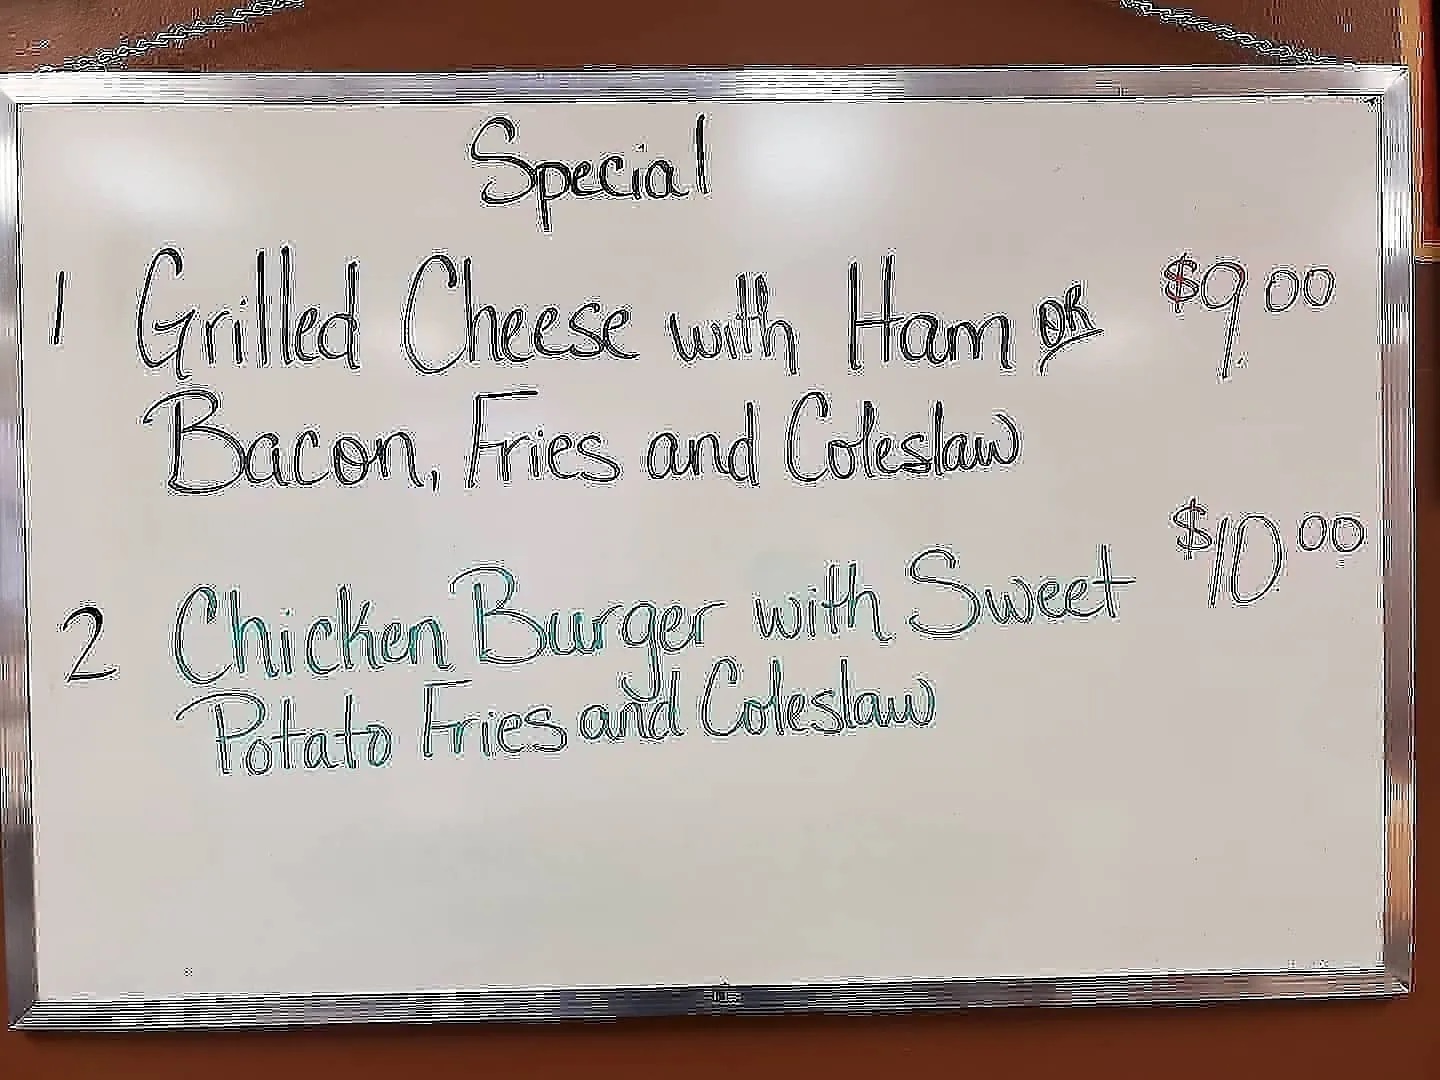 Special
1 Grilled Cheese with Ham or $9.00
Bacon, Fries and Coleslaw
2 Chicken Burger with Sweet $10.00
Potato Fries and Coleslaw